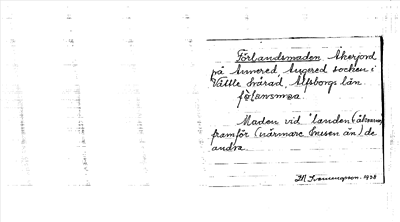 Förlandsmaden. Åkerjord
på Ånnered Angered socken i
Vättle härad, Älfsborgs län.
fö̱lansma̱a.
Maden vid "landen (åkrarna,
framför (närmare husen än) de
andra.
M Svenungsson. 1938